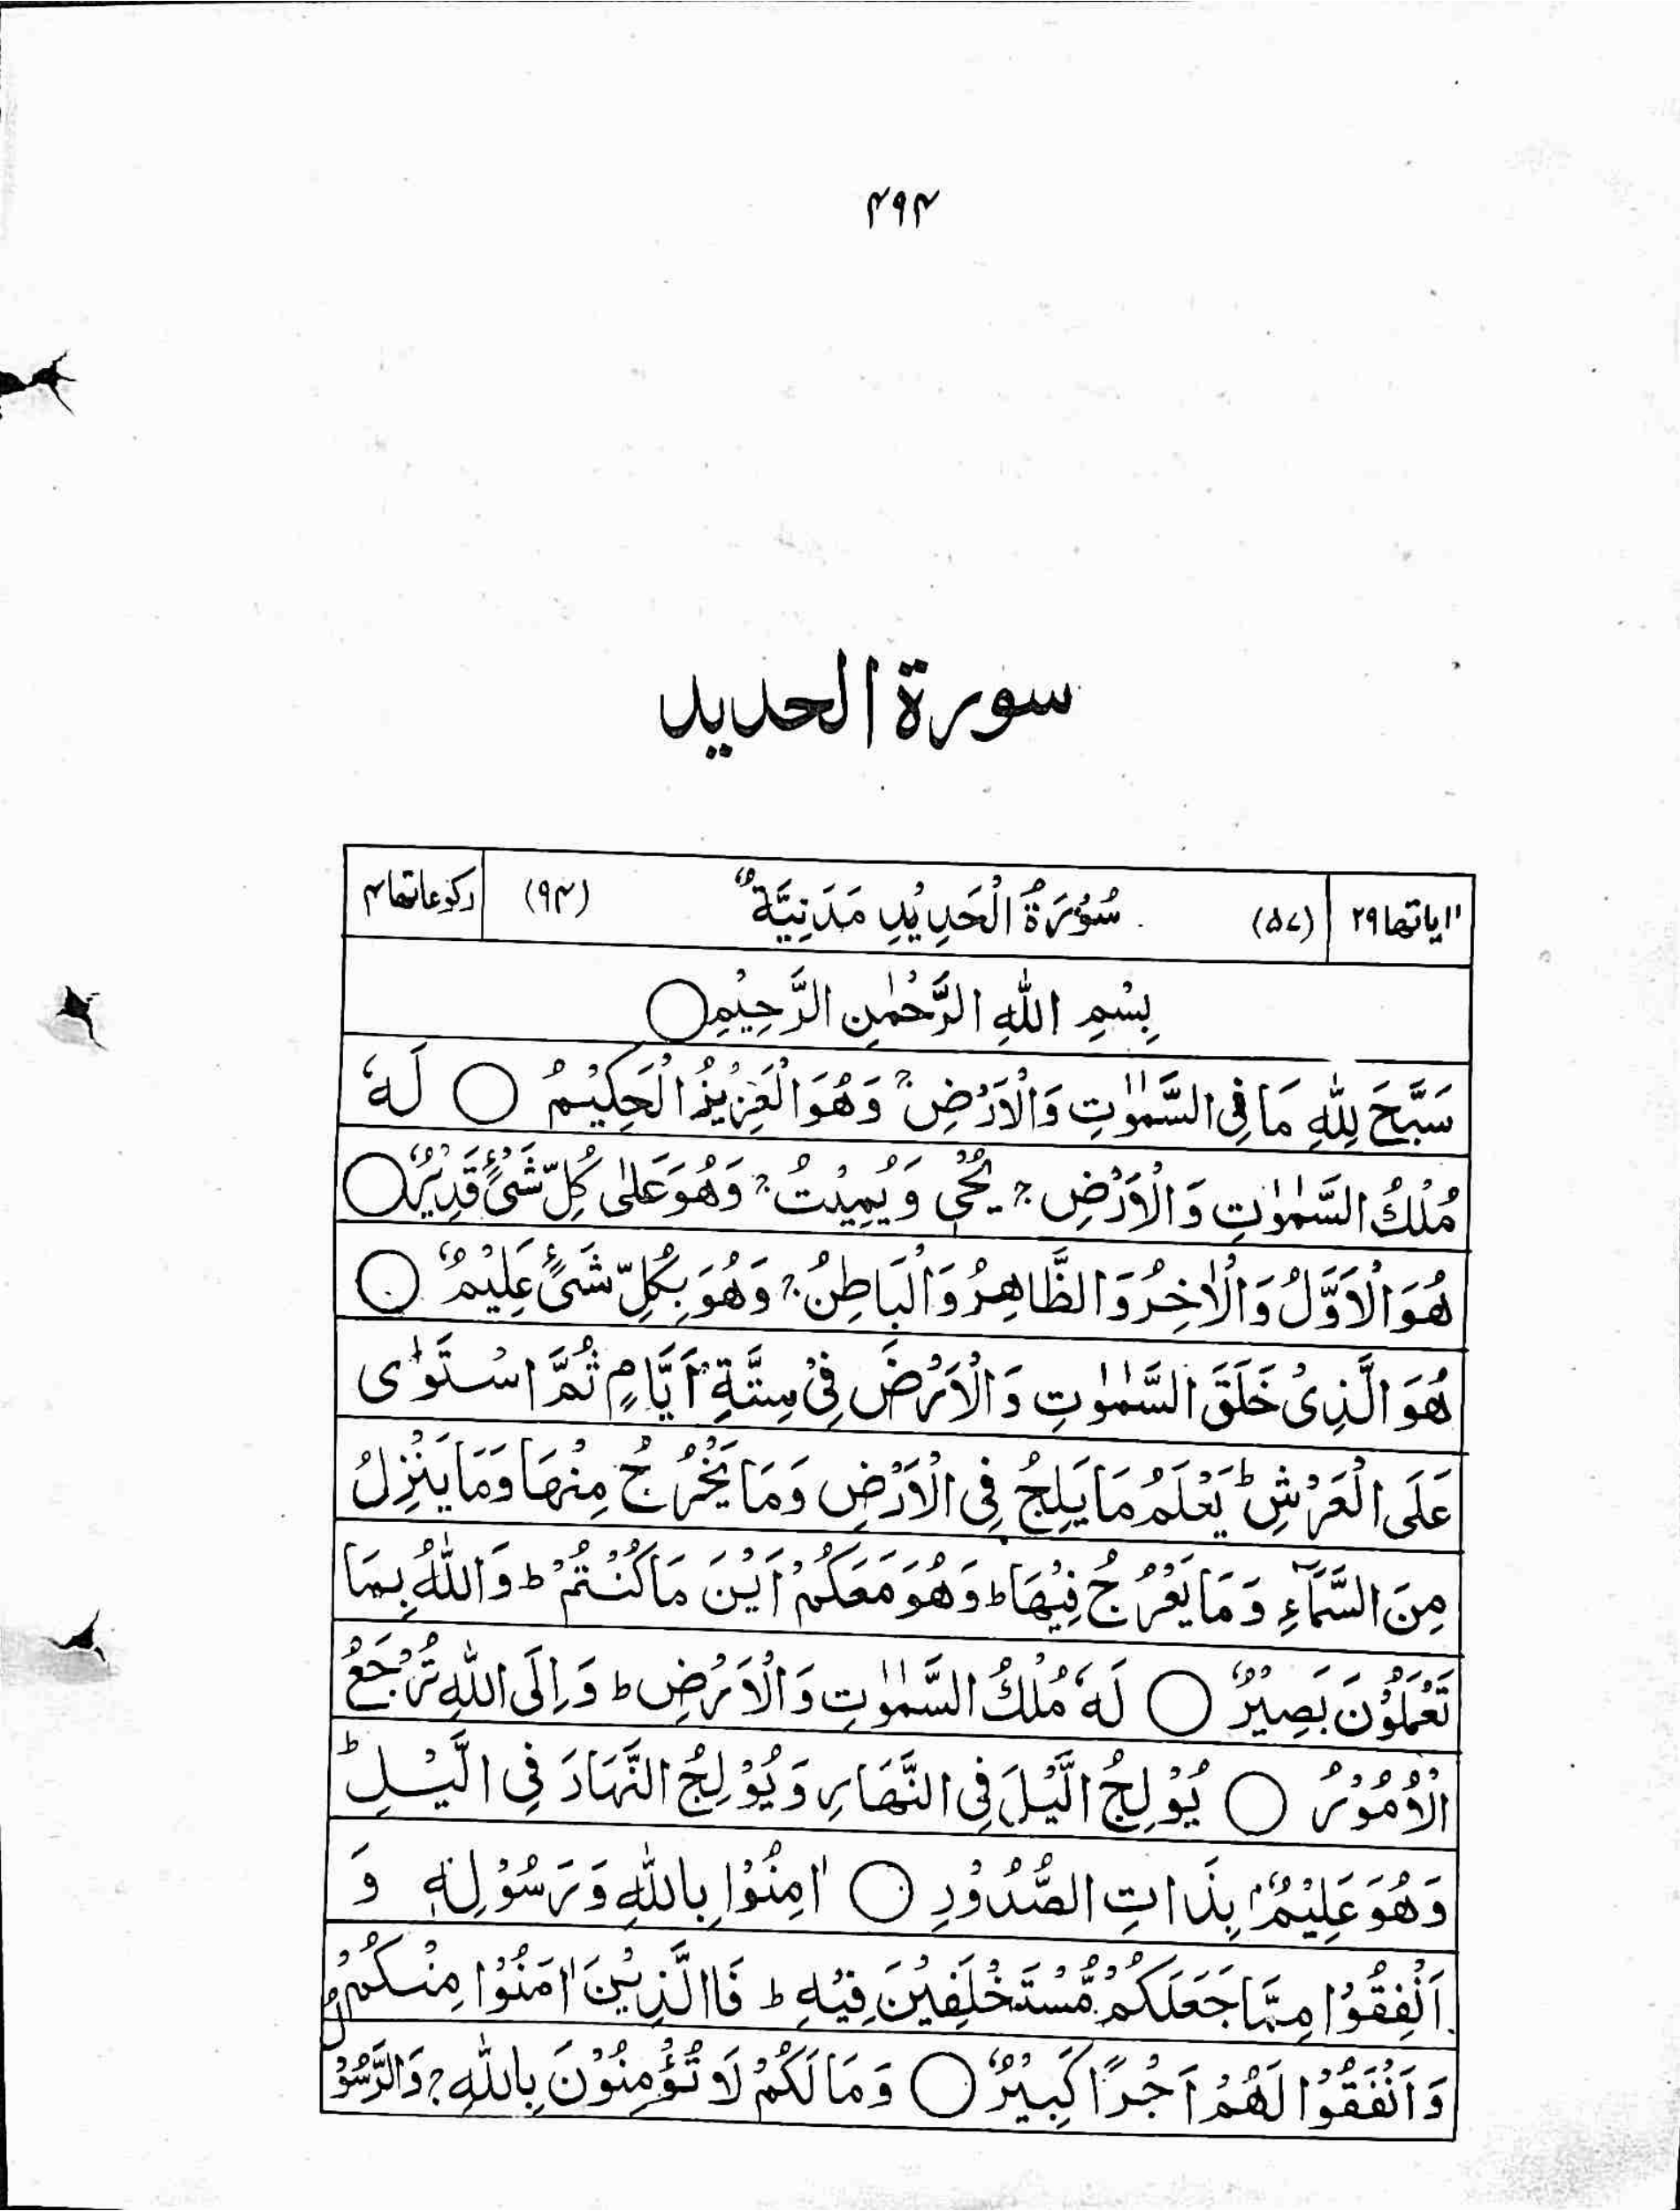 ۴۹۴
سورة الحدید
اٰیاتھا ۲۹ (۵۷) سُوْرَةُ الْحَدِیْدِ مَدَنِیَّةٌ (۹۴) رکوعاتھا ۴
بِسْمِ اللّٰهِ الرَّحْمٰنِ الرَّحِیْمِ ○
سَبَّحَ لِلّٰهِ مَا فِی السَّمٰوٰتِ وَالْاَرْضِ ۚ وَهُوَ الْعَزِیْزُ الْحَكِیْمُ ○ لَهٗ
مُلْكُ السَّمٰوٰتِ وَالْاَرْضِ ۚ یُحْیٖ وَیُمِیْتُ ۚ وَهُوَ عَلٰی كُلِّ شَیْءٍ قَدِیْرٌ ○
هُوَ الْاَوَّلُ وَالْاٰخِرُ وَالظَّاهِرُ وَالْبَاطِنُ ۚ وَهُوَ بِكُلِّ شَیْءٍ عَلِیْمٌ ○
هُوَ الَّذِیْ خَلَقَ السَّمٰوٰتِ وَالْاَرْضَ فِیْ سِتَّةِ اَیَّامٍ ثُمَّ اسْتَوٰی
عَلَی الْعَرْشِ ؕ یَعْلَمُ مَا یَلِجُ فِی الْاَرْضِ وَمَا یَخْرُجُ مِنْهَا وَمَا یَنْزِلُ
مِنَ السَّمَآءِ وَمَا یَعْرُجُ فِیْهَا ؕ وَهُوَ مَعَكُمْ اَیْنَ مَا كُنْتُمْ ؕ وَاللّٰهُ بِمَا
تَعْمَلُوْنَ بَصِیْرٌ ○ لَهٗ مُلْكُ السَّمٰوٰتِ وَالْاَرْضِ ؕ وَاِلَی اللّٰهِ تُرْجَعُ
الْاُمُوْرُ ○ یُوْلِجُ الَّیْلَ فِی النَّهَارِ وَیُوْلِجُ النَّهَارَ فِی الَّیْلِ ؕ
وَهُوَ عَلِیْمٌۢ بِذَاتِ الصُّدُوْرِ ○ اٰمِنُوْا بِاللّٰهِ وَرَسُوْلِهٖ وَ
اَنْفِقُوْا مِمَّا جَعَلَكُمْ مُّسْتَخْلَفِیْنَ فِیْهِ ؕ فَاالَّذِیْنَ اٰمَنُوْا مِنْكُمْ
وَاَنْفَقُوْا لَهُمْ اَجْرًا كَبِیْرٌ ○ وَمَا لَكُمْ لَا تُؤْمِنُوْنَ بِاللّٰهِ ۚ وَالرَّسُوْلُ